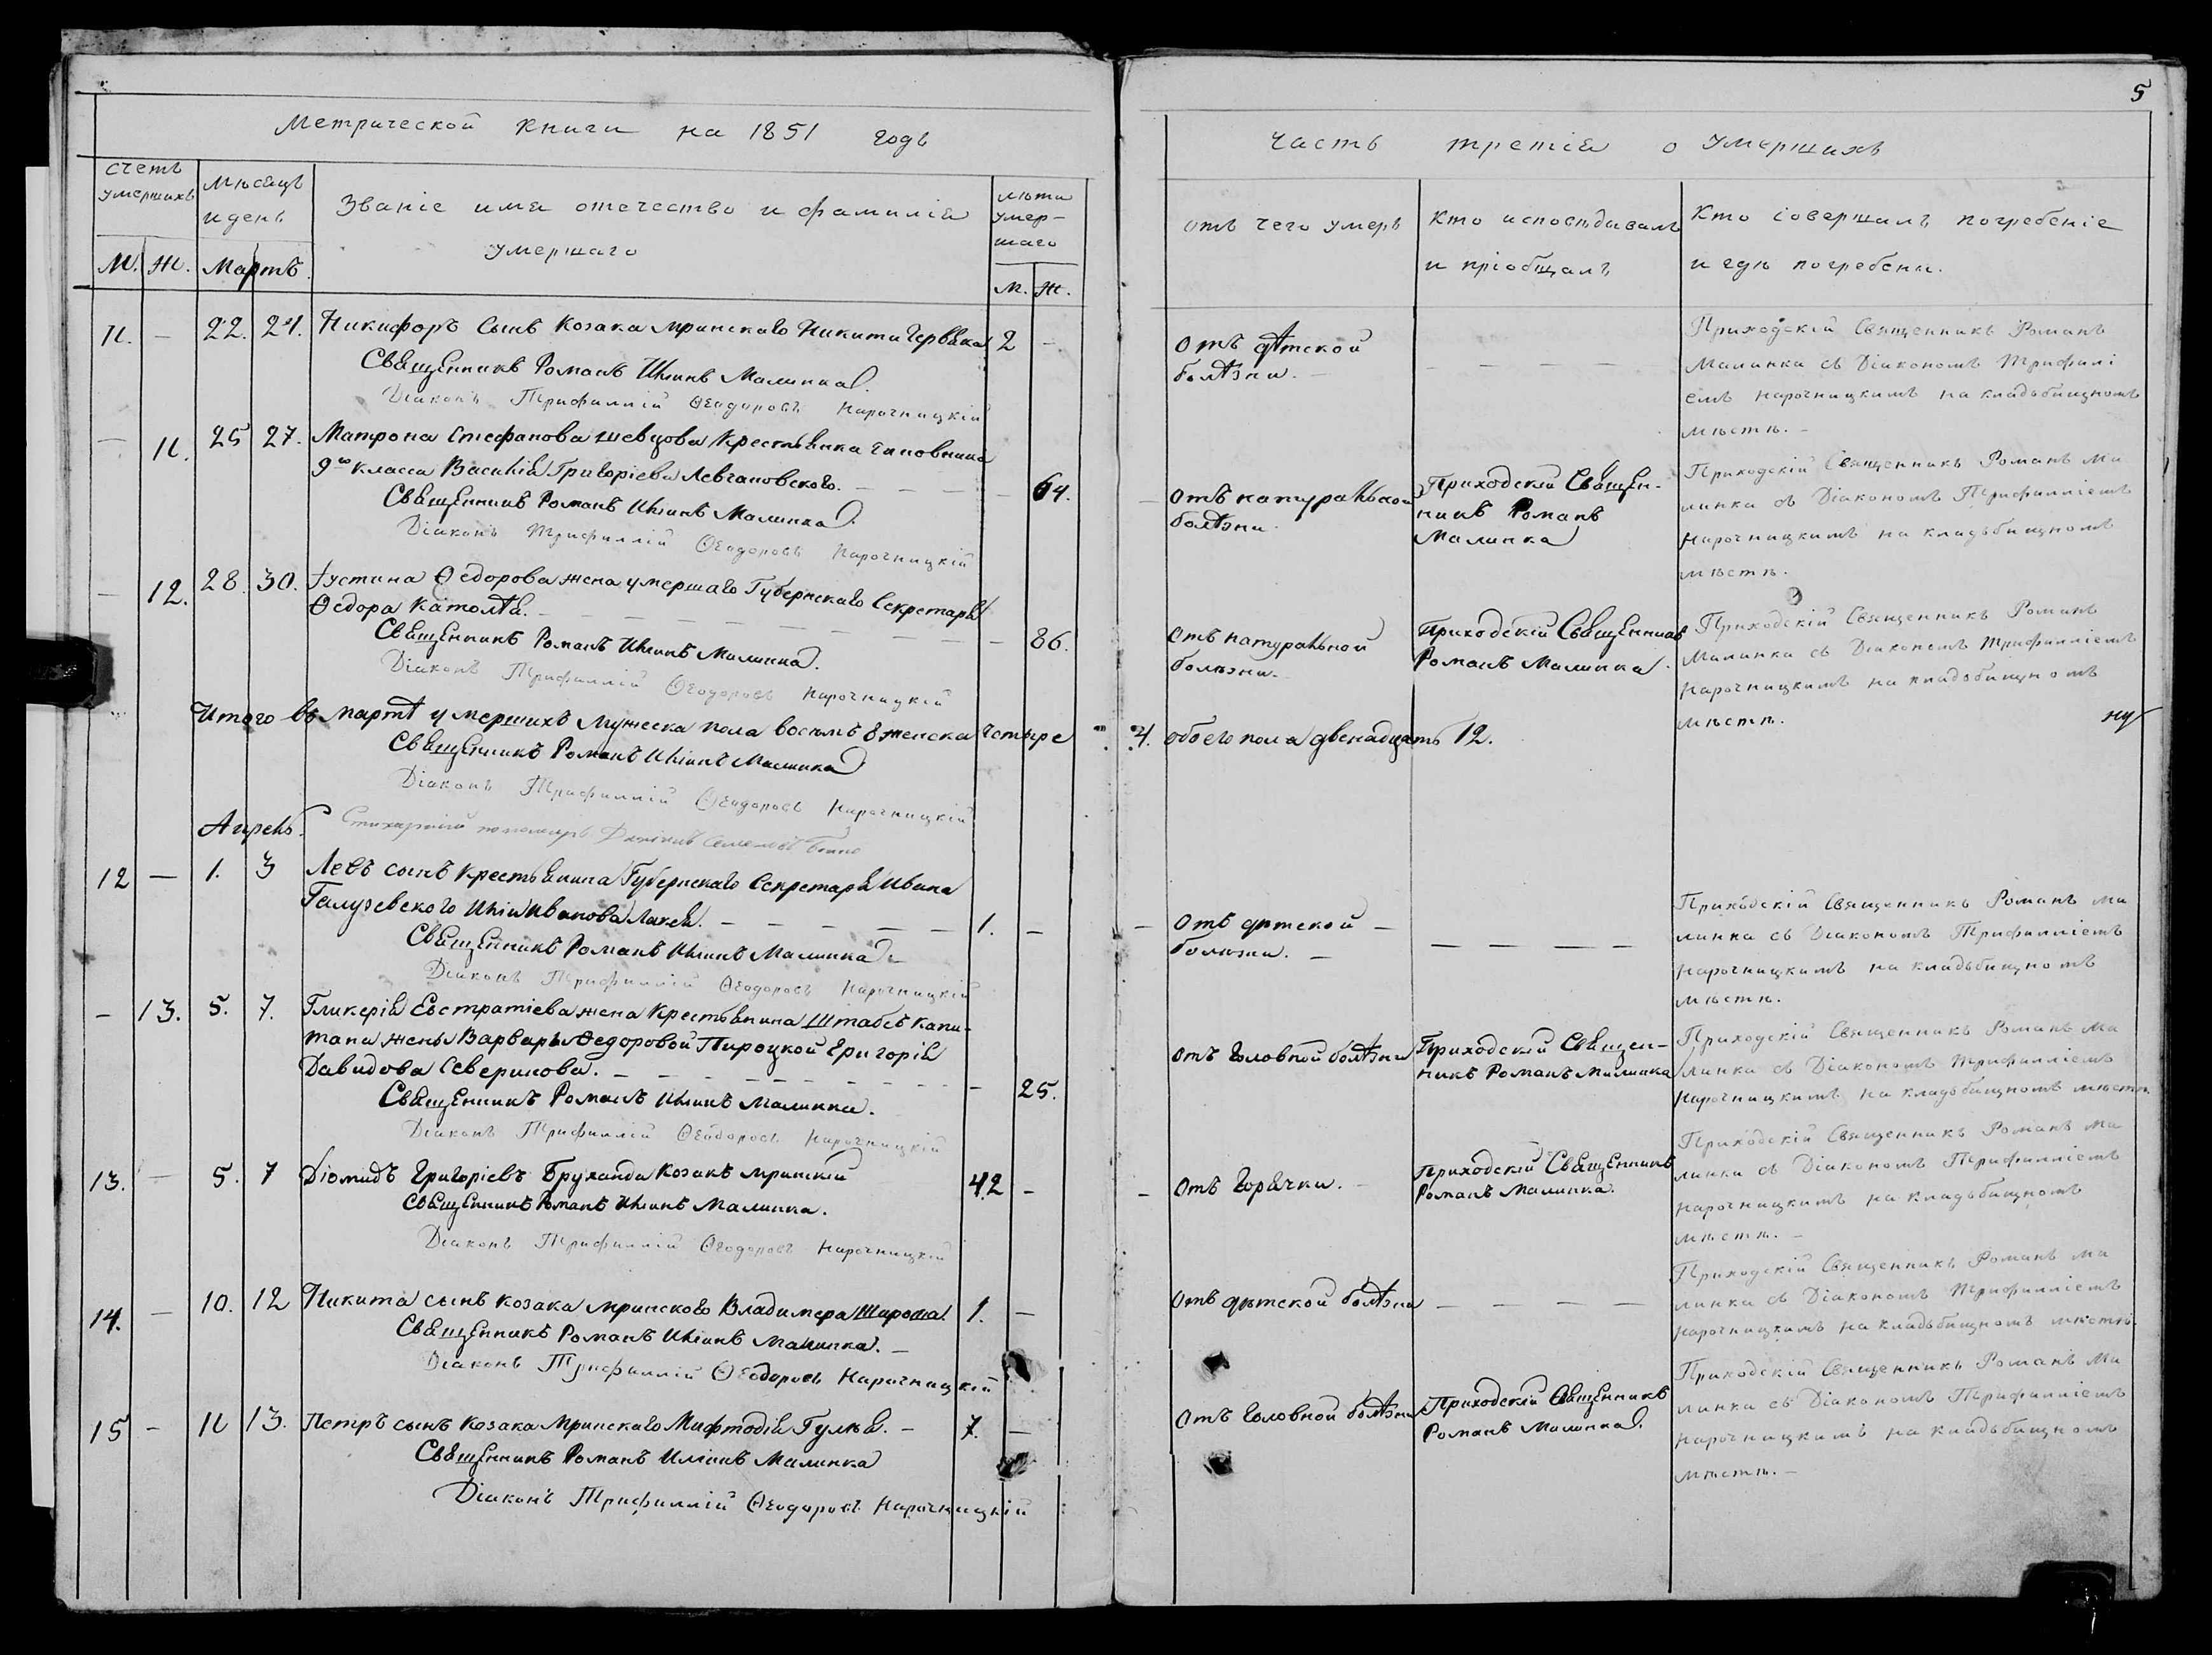 Метрической книги на 1851 годъ
счетъ умершихъ
мѣсяцъ и день
Званіе имя отечество и фамилія умершаго
лѣта умер-
шаго
М. Ж. Мартъ. м. ж.
11. — 22. 24. Никифоръ сынъ козака мринскаго Никити Червяка. 2 —
Священникъ Романъ Иліинъ Малинка.
Діаконъ Трифиллій Ѳеодоровъ Нарочницкій
— 11. 25 27. Матрона Стефанова Шевцова крестьянка чиновника
9го класса Василія Григоріева Левчановского. — — — — 64.
Священникъ Романъ Иліинъ Малинка.
Діаконъ Трифиллій Ѳеодоровъ Нарочницкій
— 12. 28. 30. Іустина Ѳедорова жена умершаго Губернскаго Секретаря
Ѳедора Католѣя. — — — 86.
Священникъ Романъ Иліинъ Малинка.
Діаконъ Трифиллій Ѳеодоровъ Нарочницкій
Итого въ мартѣ умершихъ мужеска пола восемь 8 женска четыре
Священникъ Романъ Иліинъ Малинка
Діаконъ Трифиллій Ѳеодоровъ Нарочницкій
Апрель. Стихарный пономарь
12 — 1. 3 Левъ сынъ крестьянина Губернскаго Секретаря Ивана
Галузевского Иліи Иванова Лакея. — — — — — 1. —
Священникъ Романъ Иліинъ Малинка
Діаконъ Трифиллій Ѳеодоровъ Нарочницкій
— 13. 5. 7. Гликерія Евстратіева жена крестьянина Штабсъ Капи-
тана жены Варвары Ѳедоровой Пироцкой Григорія
Давидова Северинова. — — — 25.
Священникъ Романъ Иліинъ Малинка.
Діаконъ Трифиллій Ѳеодоровъ Нарочницкій
13. — 5. 7 Діомидъ Григоріевъ Бруханда козакъ мринскій 42 —
Священникъ Романъ Иліинъ Малинка.
Діаконъ Трифиллій Ѳеодоровъ Нарочницкій
14. — 10. 12 Никита сынъ козака мринского Владимера Шароша. 1. —
Священникъ Романъ Иліинъ Малинка. —
Діаконъ Трифиллій Ѳеодоровъ Нарочницкій
15 — 11 13. Петръ сынъ козака мринскаго Мафтодія Гулѣя. — 7. —
Священникъ Романъ Иліинъ Малинка
Діаконъ Трифиллій Ѳеодоровъ Нарочницкій
5
часть третія о умершихъ
отъ чего умеръ
Кто исповѣдывалъ
и пріобщалъ
Кто совершалъ погребеніе
и гдѣ погребены.
Отъ дѣтской
болѣзни. —
— — — —
Приходскій Священникъ Романъ
Малинка съ Діакономъ Трифилі
емъ Нарочницкимъ на кладьбищномъ
мѣстѣ. —
Отъ натуральной
болѣзни
Приходскій Священ-
никъ Романъ
Малинка
Приходскій Священникъ Романъ Ма
линка съ Діакономъ Трифилліемъ
Нарочницкимъ на кладьбищномъ
мѣстѣ.
Отъ натуральной
болѣзни.
Приходскій Священникъ
Романъ Малинка.
Приходскій Священникъ Романъ
Малинка съ Діакономъ Трифилліемъ
Нарочницкимъ на кладьбищномъ
мѣстѣ.
4. обоего пола двенадцать 12.
Отъ дѣтской —
болѣзни. —
— — — —
Приходскій Священникъ Романъ Ма
линка съ Діакономъ Трифилліемъ
Нарочницкимъ на кладьбищномъ
мѣстѣ.
Отъ головной болѣзни
Приходскій Священ-
никъ Романъ Малинка
Приходскій Священникъ Романъ Ма
линка съ Діакономъ Трифилліемъ
Нарочницкимъ на кладьбищномъ мѣстѣ.
— Отъ горячки. —
Приходскій Священникъ
Романъ Малинка.
Приходскій Священникъ Романъ Ма
линка съ Діакономъ Трифилліемъ
Нарочницкимъ на кладьбищномъ
мѣстѣ. —
Отъ дѣтской болѣзни — — — —
Приходскій Священникъ Романъ Ма
линка съ Діакономъ Трифилліемъ
Нарочницкимъ на кладьбищномъ мѣстѣ.
Отъ головной болѣзни
Приходскій Священникъ
Романъ Малинка.
Приходскій Священникъ Романъ Ма
линка съ Діакономъ Трифилліемъ
Нарочницкимъ на кладьбищномъ
мѣстѣ. —